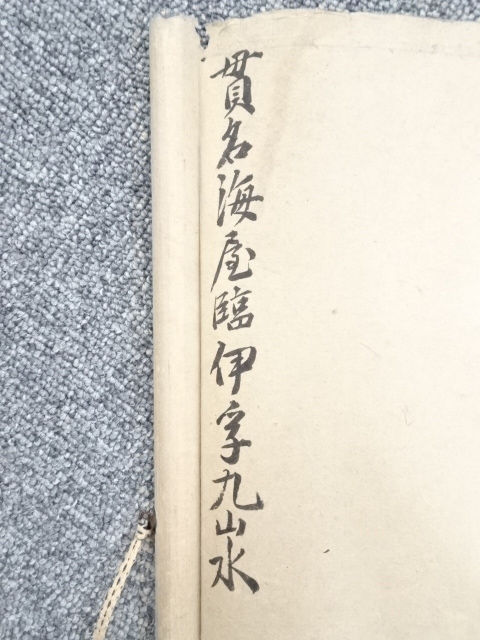 貫名海屋臨伊孚九山水